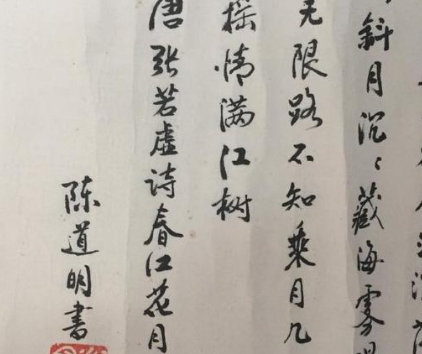 斜月沉々藏海雾
无限路不知乘月几
摇情满江树
唐张若虚诗春江花月
陈道明書